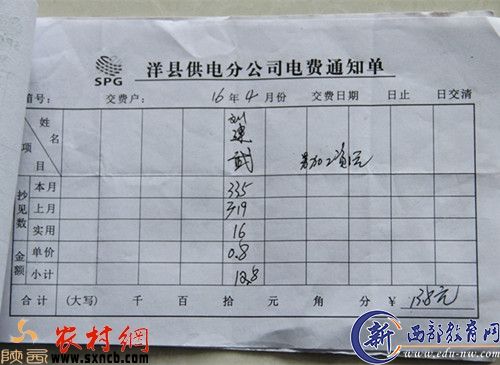 SPG
洋县供电分公司电费通知单
箱号: 交费户: 16年4月份 交费日期 日止 日交清
姓名
项目
刘建
抄见数
本月 335
上月 319
实用 16
金额
单价 0.8
小计 12.8
合计 (大写) 千 百 拾 元 角 分 ¥
陕西农村網
www.sxncb.com
新西部教育网
www.edu-nw.com